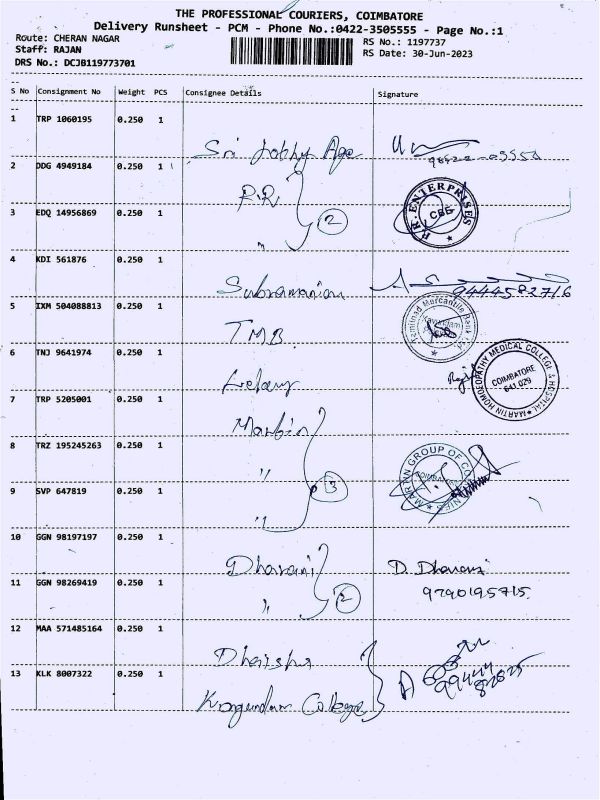 THE PROFESSIONAL COURIERS, COIMBATORE
Delivery Runsheet - PCM - Phone No.:0422-3505555 - Page No.:1
Route: CHERAN NAGAR
RS No.: 1197737
Staff: RAJAN
RS Date: 30-Jun-2023
DRS No.: DCJB119773701
S No Consignment No Weight PCS Consignee Details Signature
1 TRP 1060195 0.250 1
Sri
2 DDG 4949184 0.250 1
R.R. 2
R.R. ENTERPRISES CBE
3 EDQ 14956869 0.250 1
"
4 KDI 561876 0.250 1
Subramanian
9444582716
5 IXM 504088813 0.250 1
TMB
Tamilnad Mercantile Bank Ltd.
6 TNJ 9641974 0.250 1
MARTIN HOMOEOPATHY MEDICAL COLLEGE & HOSPITAL COIMBATORE 641 029
7 TRP 5205001 0.250 1
Martin
8 TRZ 195245263 0.250 1
" 3
MARTIN GROUP OF COMPANIES
9 SVP 647819 0.250 1
"
10 GGN 98197197 0.250 1
Dharani D. Dharani
11 GGN 98269419 0.250 1
" 2 9790195715
12 MAA 571485164 0.250 1
13 KLK 8007322 0.250 1
College